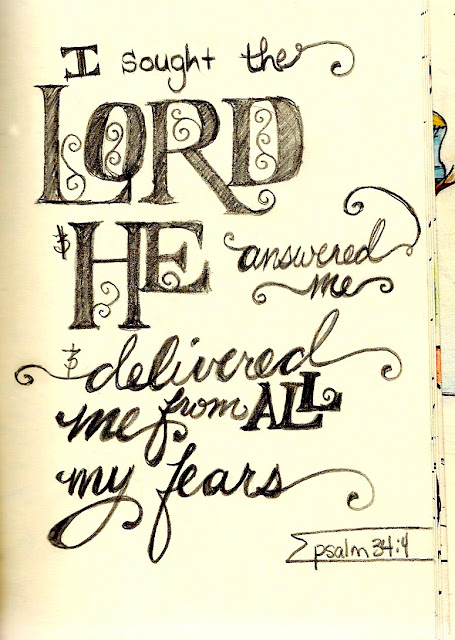 I sought the
LORD
& HE answered
me
& delivered
me from ALL
my fears
psalm 34:4